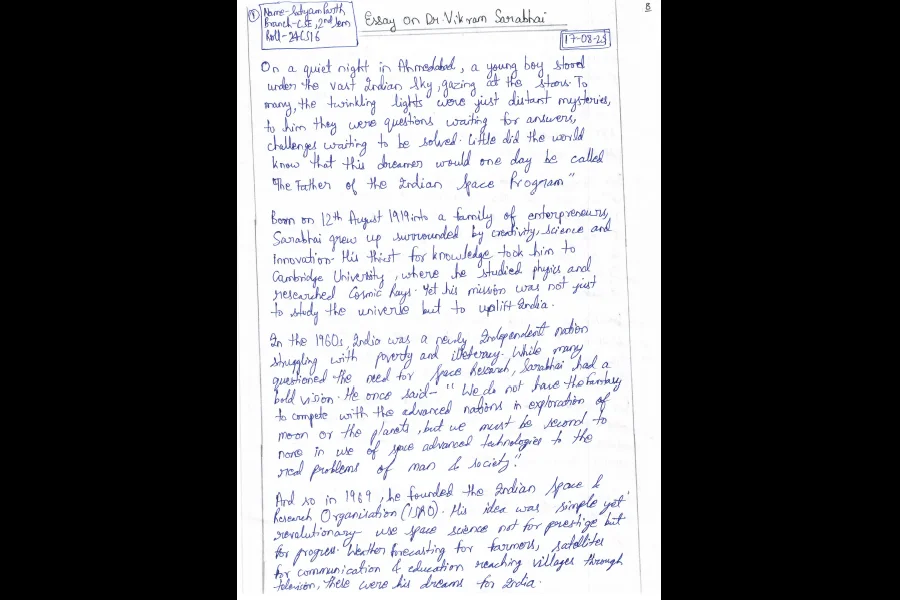 ① Name-Satyam Parth
Branch-CSE, 2nd Sem
Roll-24CS16
Essay on Dr. Vikram Sarabhai
17-08-25
On a quiet night in Ahmedabad, a young boy stood
under the vast Indian Sky, gazing at the stars. To
many, the twinkling lights were just distant mysteries,
to him they were questions waiting for answers,
challenges waiting to be solved. Little did the world
know that this dreamer would one day be called
"The Father of the Indian Space Program"
Born on 12th August 1919 into a family of enterpreneurs,
Sarabhai grew up surrounded by creativity, science and
innovation. His thirst for knowledge took him to
Cambridge University, where he studied physics and
researched Cosmic Rays. Yet his mission was not just
to study the universe but to uplift India.
In the 1960s, India was a newly Independent nation
struggling with poverty and illeteracy. While many
questioned the need for Space Research, Sarabhai had a
bold vision. He once said- "We do not have the fantasy
to compete with the advanced nations in exploration of
moon or the planets, but we must be second to
none in use of space advanced technologies to the
real problems of man & society."
And so in 1969, he founded the Indian Space &
Research Organisation (ISRO). His idea was simple yet
revolutionary use space science not for prestige but
for progress. Weather forecasting for farmers, satellites
for communication & education reaching villages through
television, these were his dreams for India.